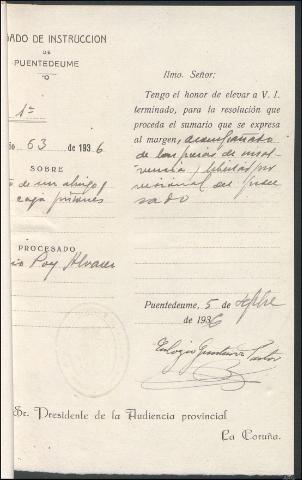 GADO DE INSTRUCCION
DE
PUENTEDEUME
1ª
63 de 1936
SOBRE
de un abrigo
PROCESADO
Poy Alvarez
Ilmo. Señor:
Tengo el honor de elevar a V. I.
terminado, para la resolución que
proceda el sumario que se expresa
al margen, acompañado
de las piezas de insol-
vencia y libertad pro
visional del proce
sado
Puentedeume, 5 de
de 1936
Sr. Presidente de la Audiencia provincial
La Coruña.